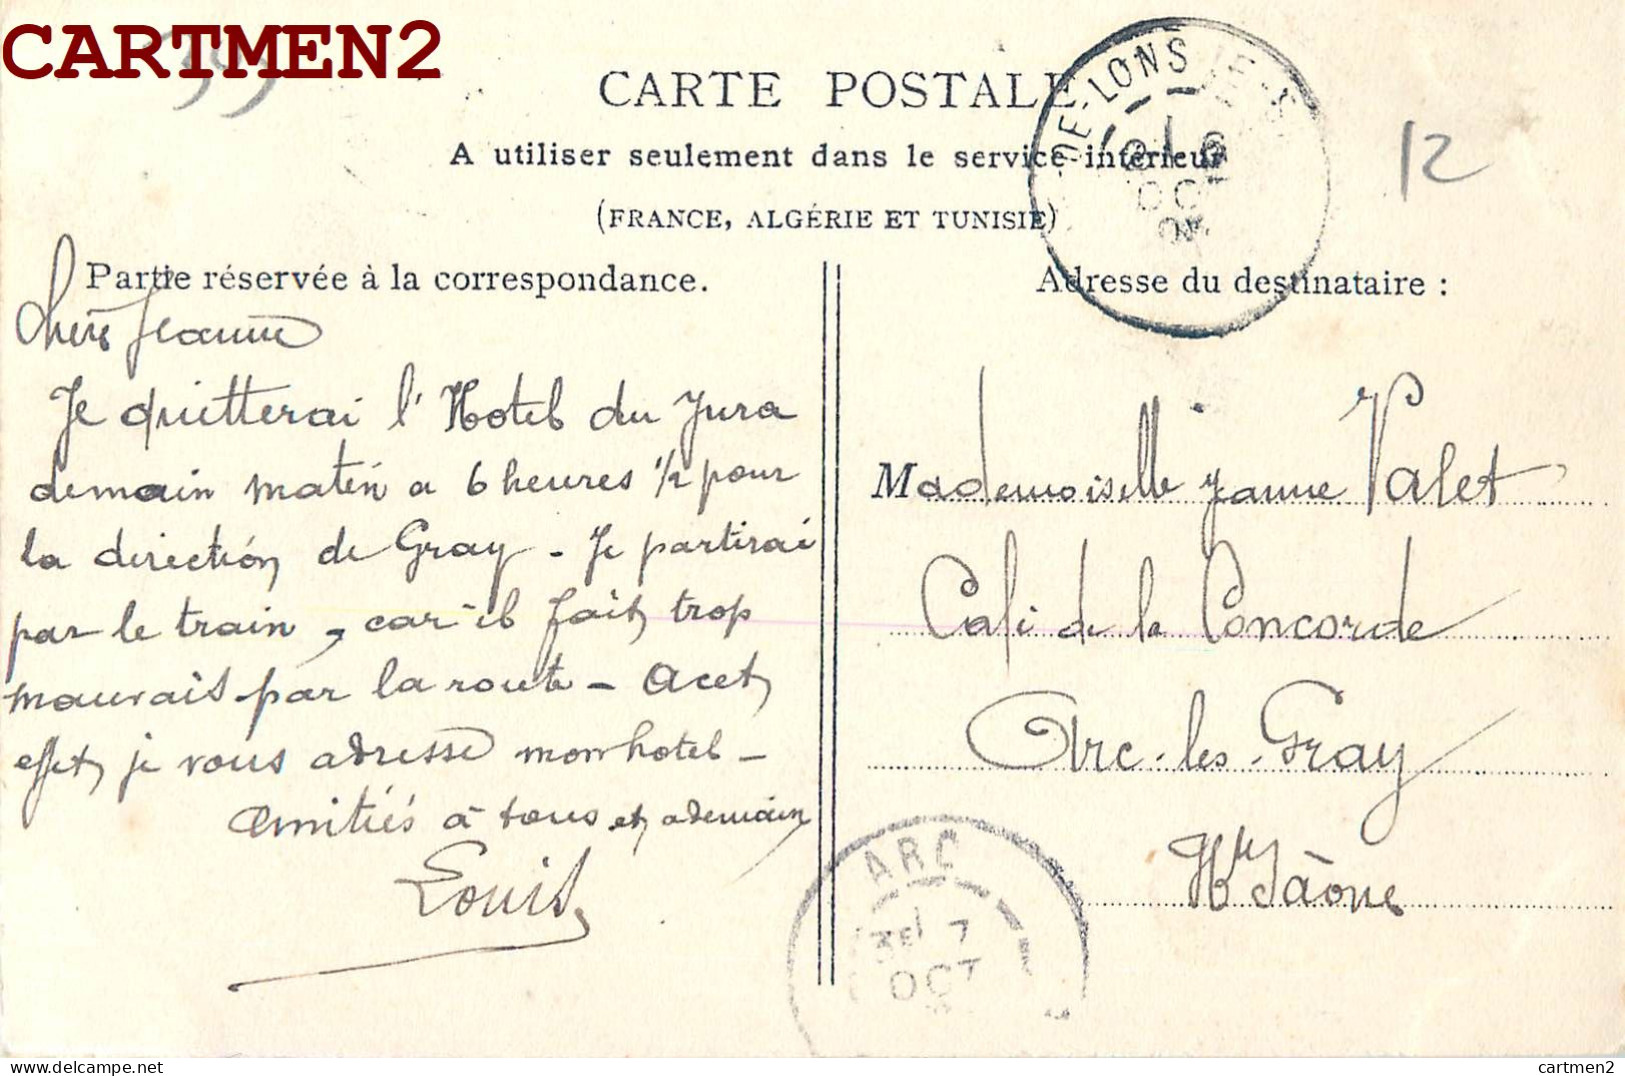 CARTMEN2
39
CARTE POSTALE
A utiliser seulement dans le service intérieur
(FRANCE, ALGÉRIE ET TUNISIE)
12
DE LONS
OCT
Partie réservée à la correspondance.
Adresse du destinataire :
Chère Jeanne
Je quitterai l'Hotel du Jura
demain matin a 6 heures 1/2 pour
la direction de Gray - Je partirai
par le train, car il fait trop
mauvais par la route - A cet
effet je vous adresse mon hotel -
Amitiés à tous et a demain
Louis
Mademoiselle Jeanne Valet
Café de la Concorde
Arc-les-Gray
Hte Saône
ARC
7
OCT
cartmen2